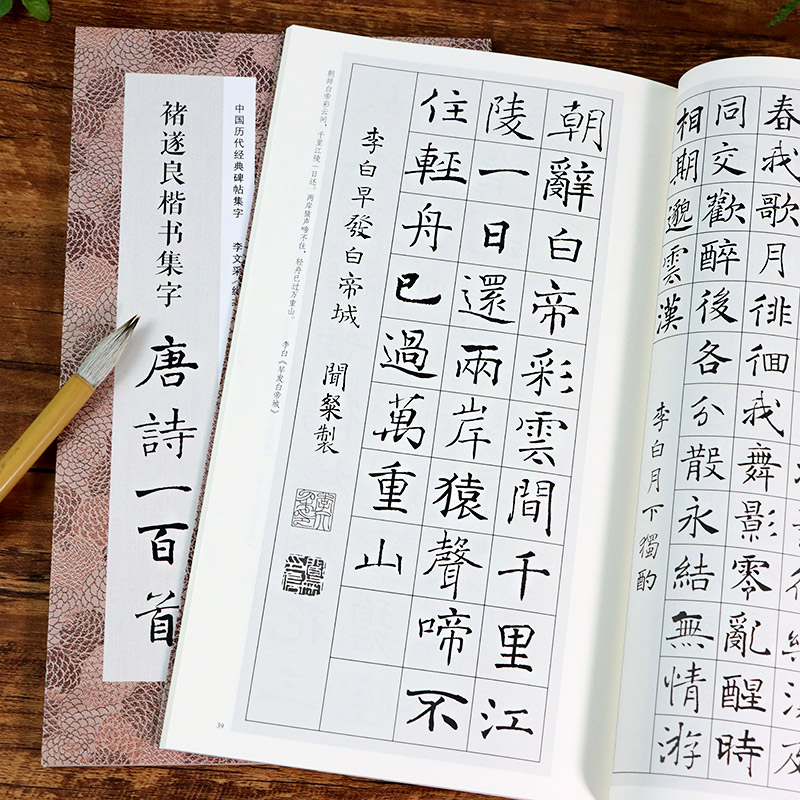 中国历代经典碑帖集字
李文采
褚遂良楷书集字
唐詩一百首
春我歌月徘徊我舞影零亂醒時
同交歡醉後各分散永結無情游
相期邈雲漢
李白月下獨酌
朝辭白帝彩雲間千里江
陵一日還兩岸猿聲啼不
住輕舟已過萬重山
李白早發白帝城 聞粲製
朝辞白帝彩云间，千里江陵一日还。两岸猿声啼不住，轻舟已过万重山。
李白《早发白帝城》
39